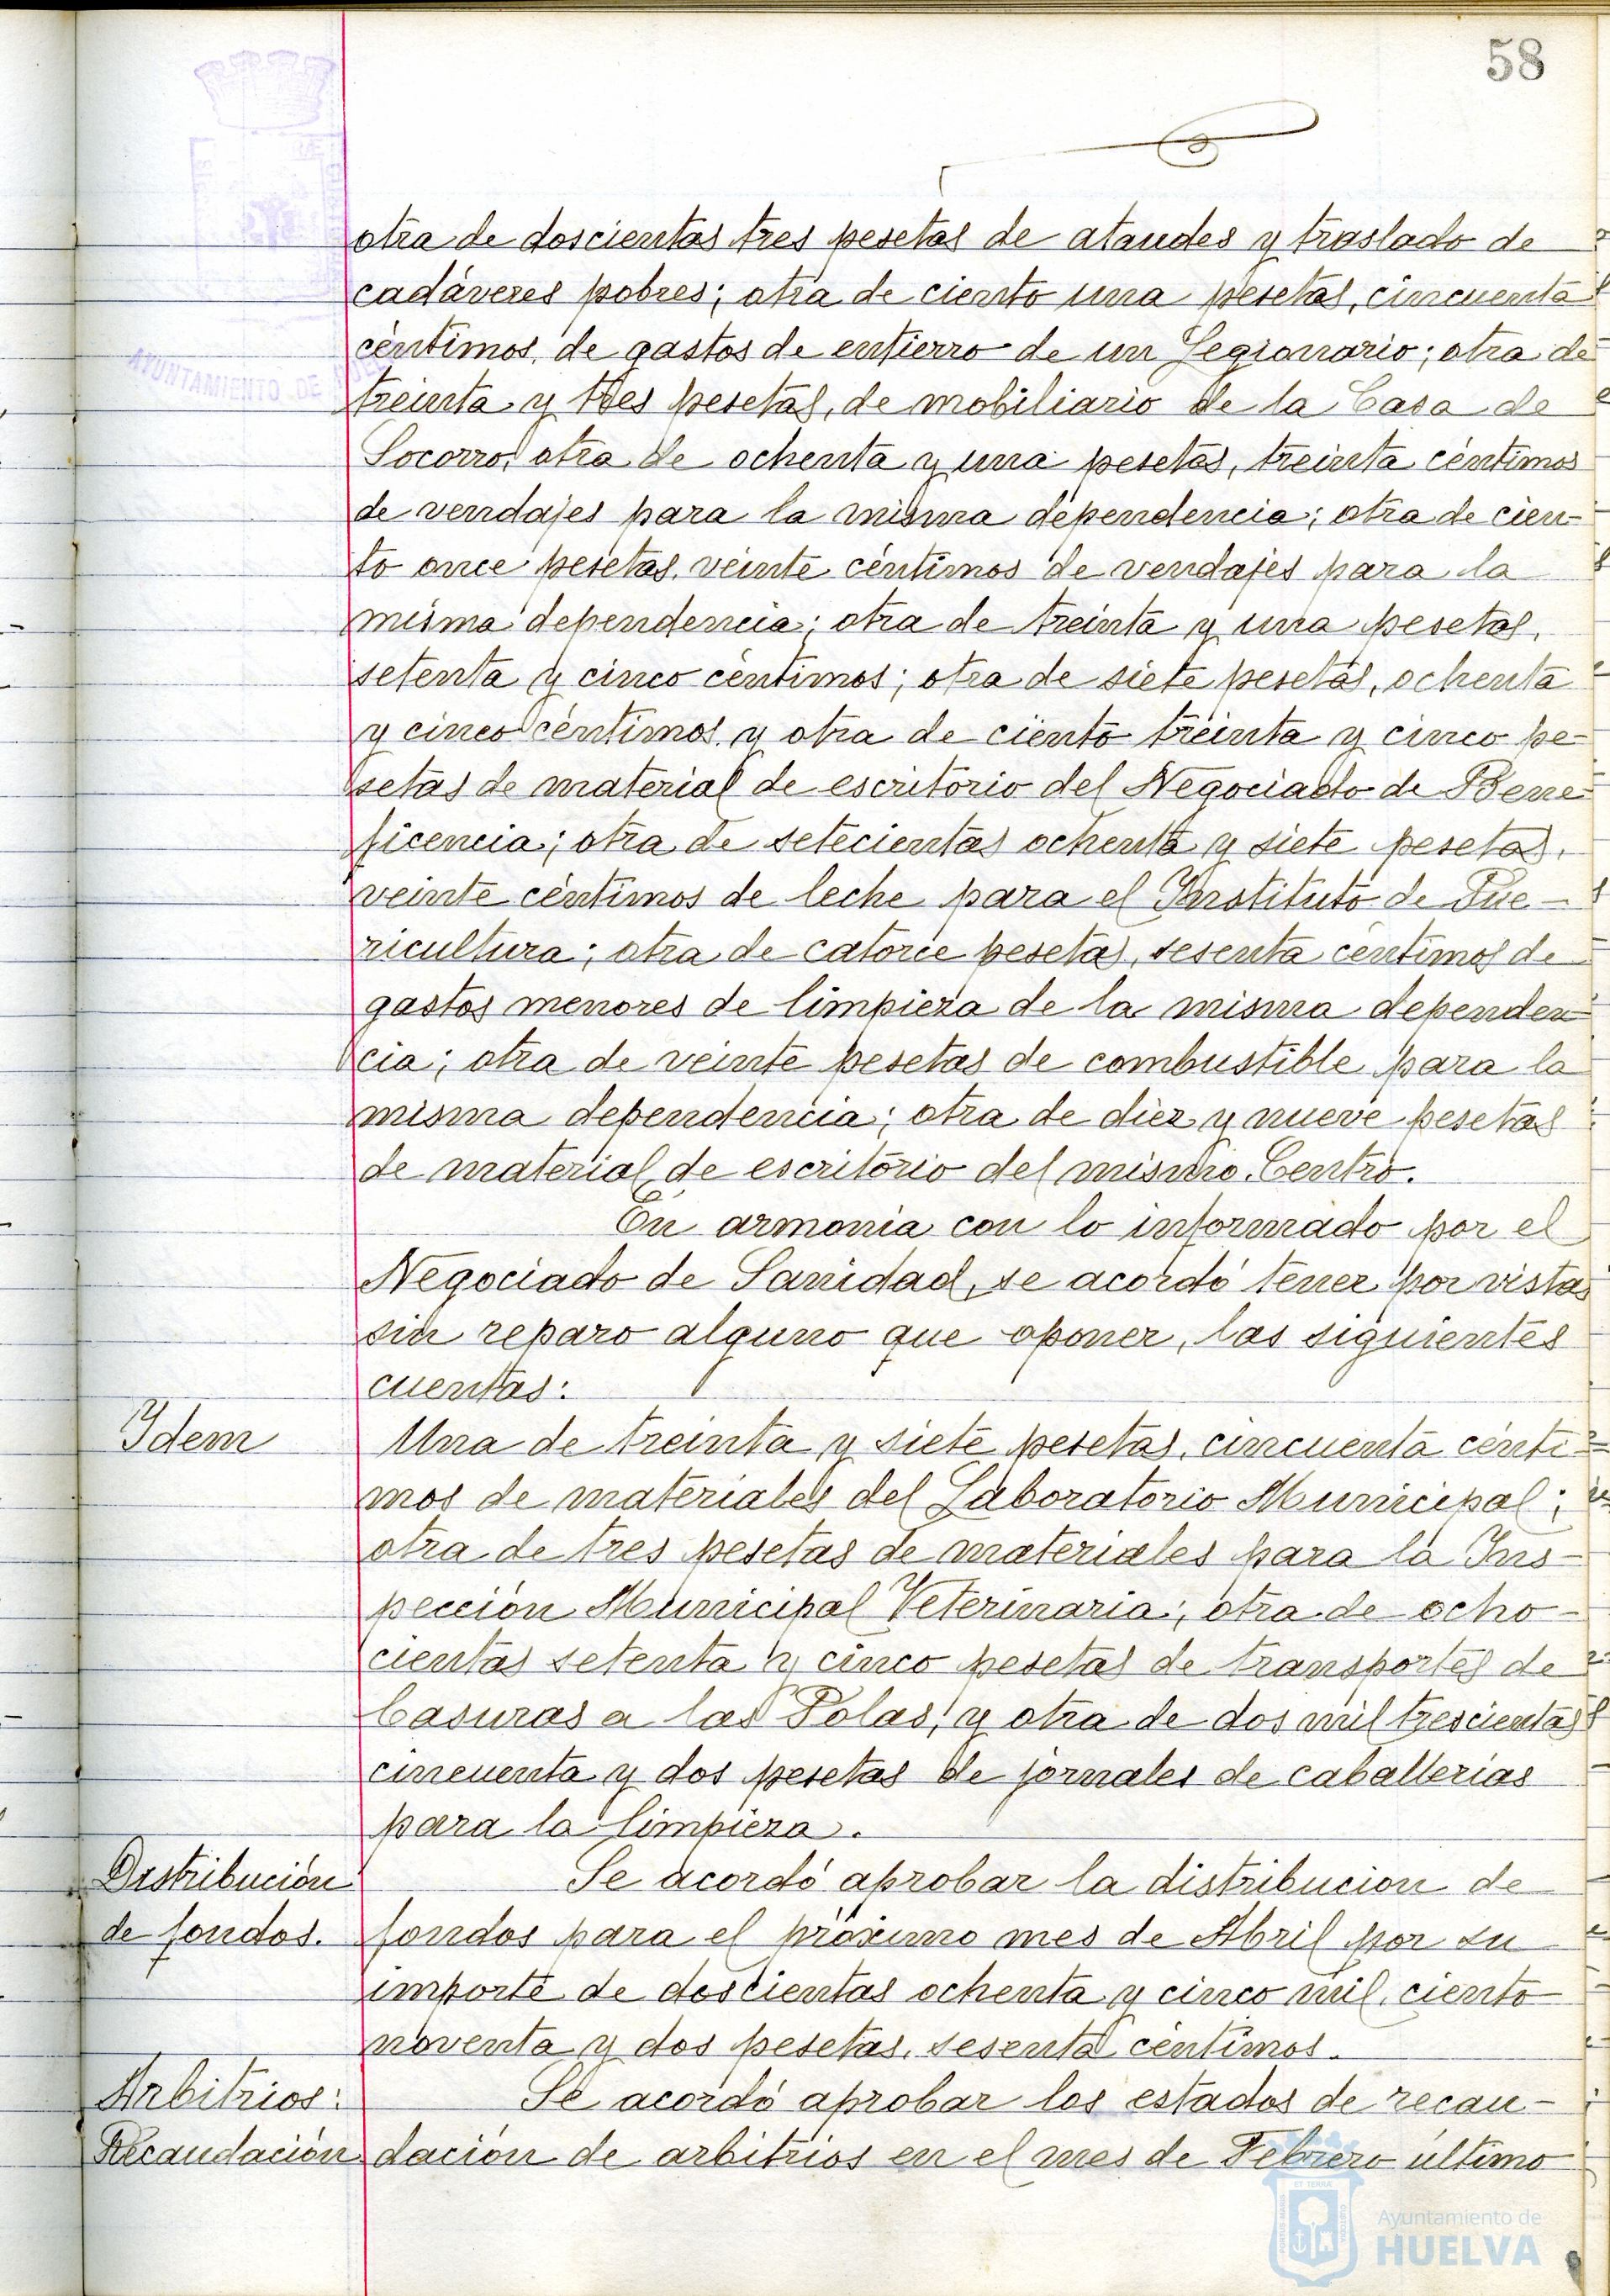 58
otra de doscientas tres pesetas de ataudes y traslado de
cadáveres pobres; otra de ciento una pesetas, cincuenta
céntimos, de gastos de entierro de un Legionario; otra de
treinta y tres pesetas, de mobiliario de la Casa de
Socorro; otra de ochenta y una pesetas, treinta céntimos
de vendajes para la misma dependencia; otra de cien-
to once pesetas, veinte céntimos de vendajes para la
misma dependencia; otra de treinta y una pesetas,
setenta y cinco céntimos; otra de siete pesetas, ochenta
y cinco céntimos y otra de ciento treinta y cinco pe-
setas de material de escritorio del Negociado de Bene-
ficencia; otra de setecientas ochenta y siete pesetas,
veinte céntimos de leche para el Instituto de Pue-
ricultura; otra de catorce pesetas, sesenta céntimos de
gastos menores de limpieza de la misma dependen-
cia; otra de veinte pesetas de combustible para la
misma dependencia; otra de diez y nueve pesetas
de material de escritorio del mismo Centro.
En armonía con lo informado por el
Negociado de Sanidad, se acordó tener por vistas
sin reparo alguno que oponer, las siguientes
cuentas:
Idem
Una de treinta y siete pesetas, cincuenta cénti-
mos de materiales del Laboratorio Municipal;
otra de tres pesetas de materiales para la Ins-
pección Municipal Veterinaria; otra de ocho-
cientas setenta y cinco pesetas de transportes de
basuras a las Polas, y otra de dos mil trescientas
cincuenta y dos pesetas de jornales de caballerías
para la limpieza.
Distribución
de fondos.
Se acordó aprobar la distribucion de
fondos para el próximo mes de Abril por su
importe de doscientas ochenta y cinco mil, ciento
noventa y dos pesetas, sesenta céntimos.
Arbitrios:
Recaudación
Se acordó aprobar los estados de recau-
dación de arbitrios en el mes de Febrero último
AYUNTAMIENTO DE
Ayuntamiento de
HUELVA